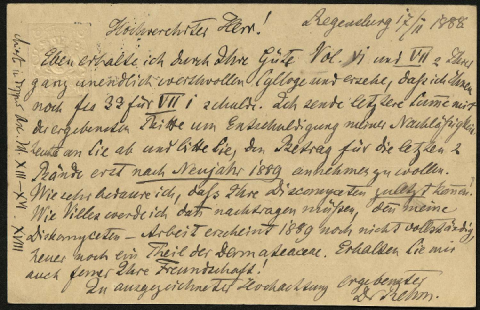 Hochverehrter Herr! Regensburg 17/II 1888
Eben erhalte ich durch Ihre Güte Vol. VI und VII 2 Ihrer
ganz unendlich werthvollen Sylloge und ersehe, daß ich Ihnen
noch frs 33 für VII 1 schulde. Ich sende letztere Summe mit
der ergebensten Bitte um Entschuldigung meiner Nachläßigkeit
heute an Sie ab und bitte Sie, den Betrag für die letzten 2
Bände erst nach Neujahr 1889 annehmen zu wollen.
Wie sehr bedaure ich, daß Ihre Discomyceten zuletzt kamen!
Wie Vieles werde ich da nachtragen müßen, denn meine
Diskomyceten-Arbeit erscheint 1889 noch nicht vollständig,
heuer noch ein Theil der Dermateaceae. Erhalten Sie mir
auch ferner Ihre Freundschaft!
In ausgezeichneter Hochachtung ergebenster
Dr Rehm.
XIII–XVI. XVIII